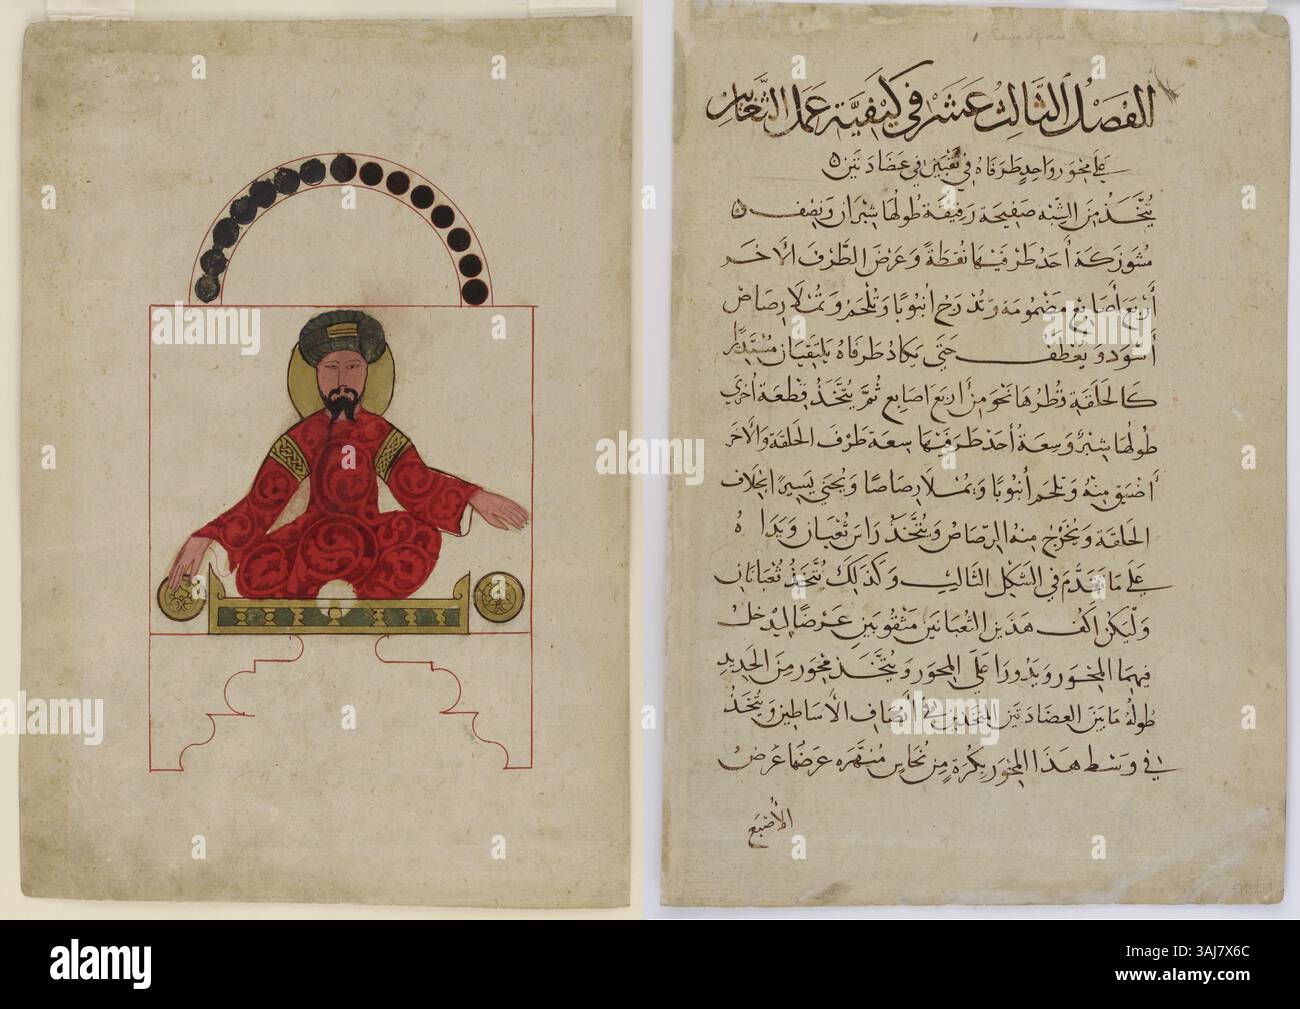 الفصل الثالث عشر في كيفية عمل الثعابين
على محور واحد طرفاه في ثقبين في عضادتين ه
يتخذ من الشبه صفيحة رقيقة طولها شبران ونصف ه
مشوزكة أحد طرفيها نقطة وعرض الطرف الآخر
أربع أصابع مضمومة وتدرج انبوبا وتلحم وتملا رصاص
أسود ويعطف حتى يكاد طرفاه يلتقيان مستديرا
كالحلقة قطرها نحو من أربع اصابع ثم يتخذ قطعة أخرى
طولها شبر وسعة أحد طرفيها سعة طرف الحلقة والآخر
أضيق منه وتلحم أنبوبا ويملا رصاصا ويحنى يسيرا بخلاف
الحلقة ويخرج منه الرصاص ويتخذ راس ثعبان ويداه
على ما تقدم في الشكل الثالث وكذلك يتخذ ثعبانان
وليكن أكف هذين الثعبانين مثقوبين عرضا ليدخل
فيهما المحور ويدورا على المحور ويتخذ محور من الحديد
طوله ما بين العضادتين المتخذتين في أنصاف الأساطين ويتخذ
في وسط هذا المحور بكرة من نحاس منهره عرضها عرض
الأصبع
alamy
alamy
Image ID: 3AJ7X6C
www.alamy.com